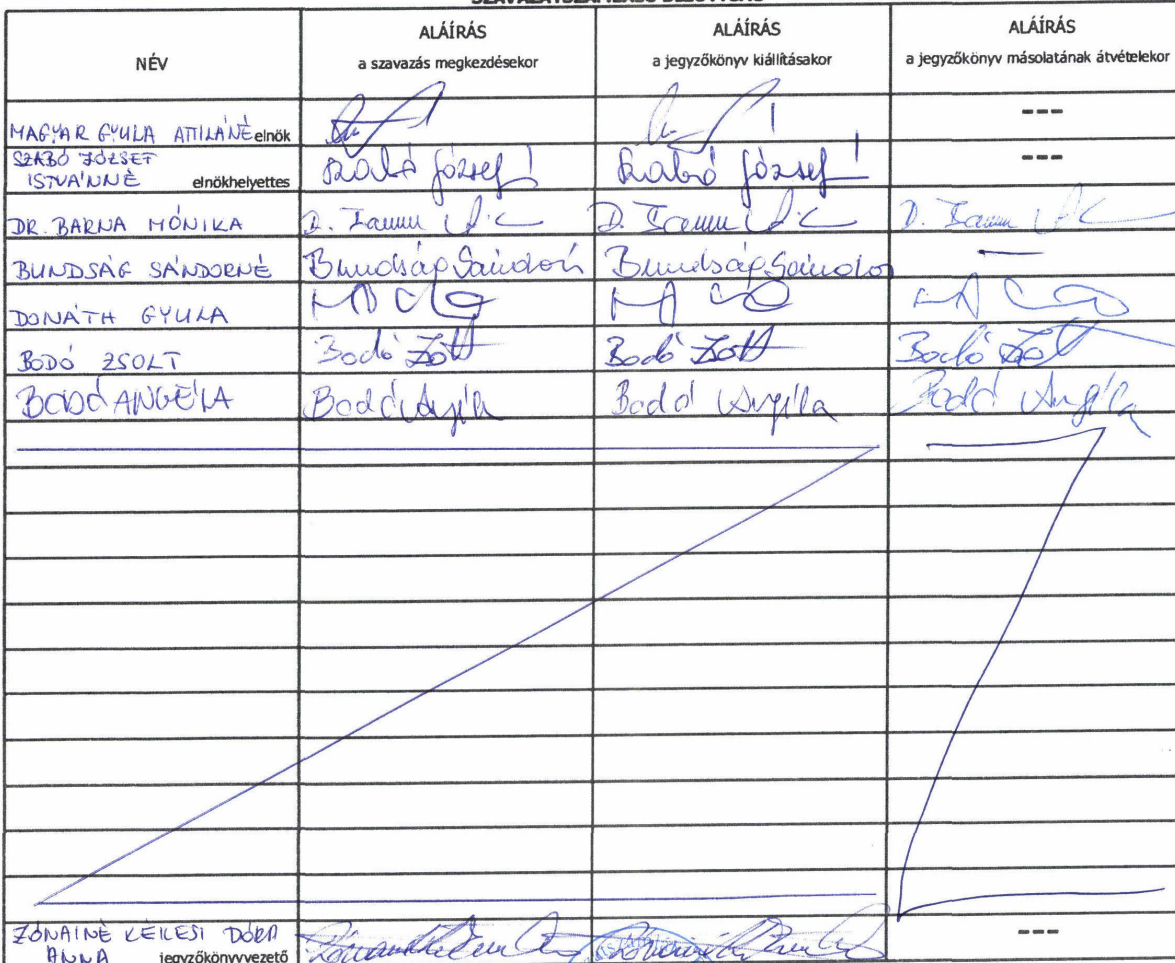 SZAVAZATSZÁMLÁLÓ BIZOTTSÁG
NÉV
ALÁÍRÁS
a szavazás megkezdésekor
ALÁÍRÁS
a jegyzőkönyv kiállításakor
ALÁÍRÁS
a jegyzőkönyv másolatának átvételekor
MAGYAR GYULA ATTILÁNÉ elnök
---
SZABÓ JÓZSEF
ISTVÁNNÉ elnökhelyettes
Szabó József
Szabó József
---
DR. BARNA MÓNIKA
BUNDSÁG SÁNDORNÉ Bundság Sándorn Bundság Sándor
DONÁTH GYULA
BODÓ ZSOLT Bodó Zsolt Bodó Zsolt Bodó Zsolt
BODÓ ANGÉLA Bodó Angéla Bodó Angéla Bodó Angéla
ZÓNAINÉ
ANNA jegyzőkönyvvezető
---